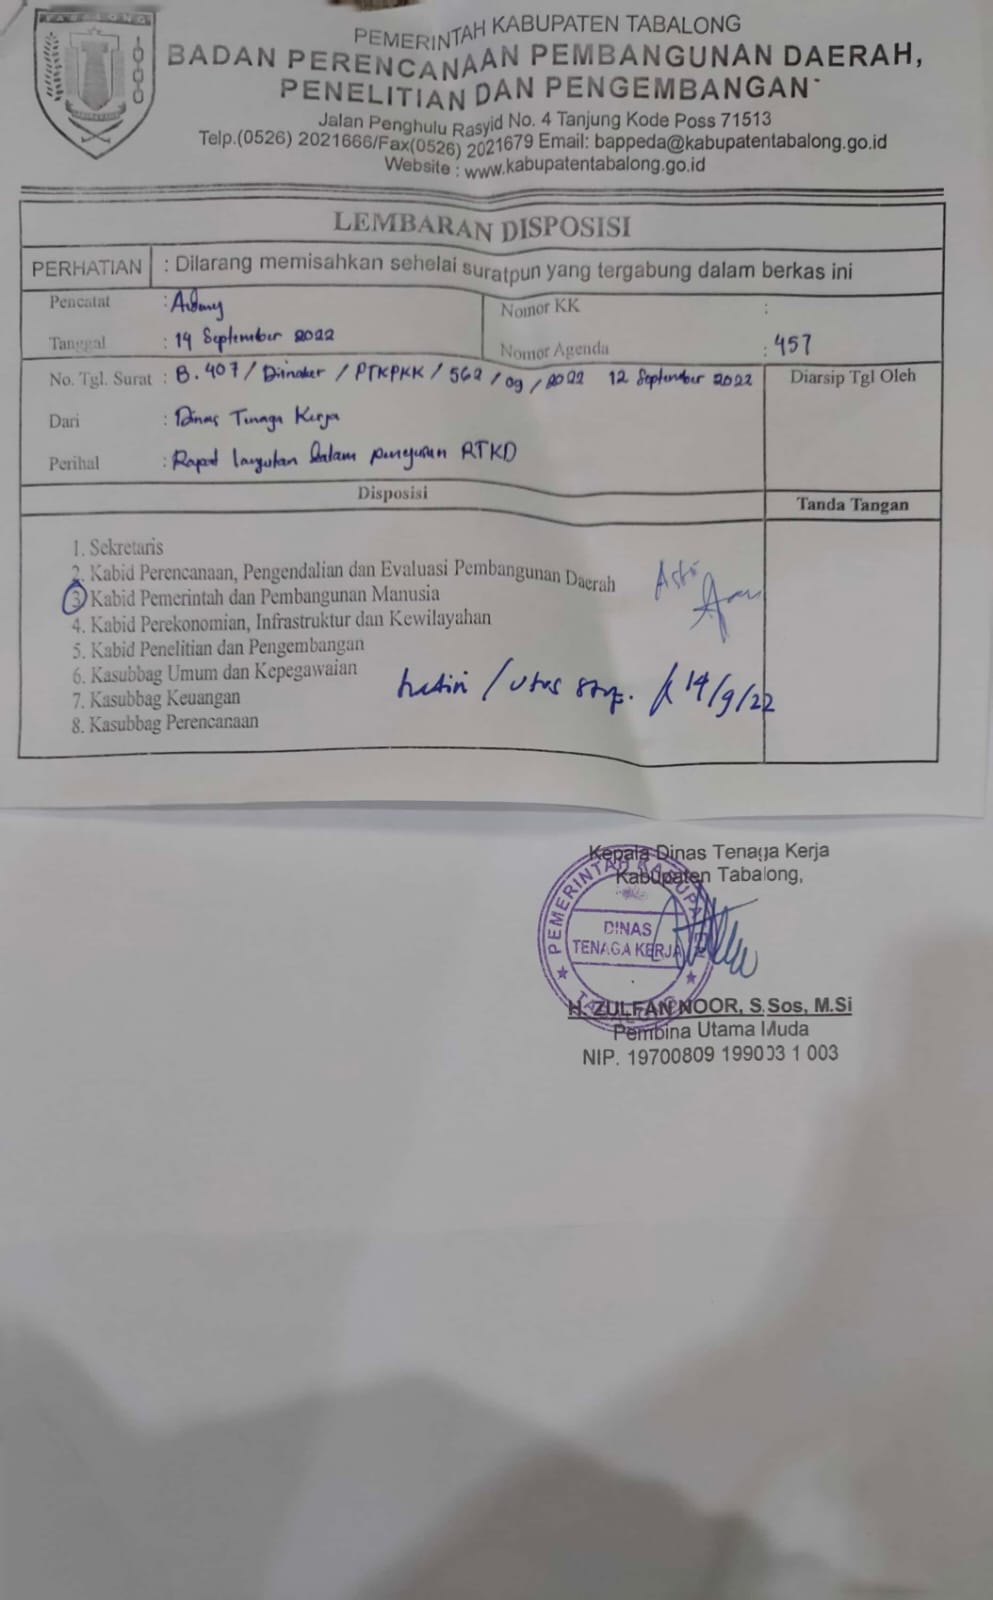 TABALONG
PEMERINTAH KABUPATEN TABALONG
BADAN PERENCANAAN PEMBANGUNAN DAERAH,
PENELITIAN DAN PENGEMBANGAN
Jalan Penghulu Rasyid No. 4 Tanjung Kode Poss 71513
Telp.(0526) 2021666/Fax(0526) 2021679 Email: bappeda@kabupatentabalong.go.id
Website : www.kabupatentabalong.go.id
LEMBARAN DISPOSISI
PERHATIAN : Dilarang memisahkan sehelai suratpun yang tergabung dalam berkas ini
Pencatat :
Nomor KK :
Tanggal : 14 September 2022
Nomor Agenda : 457
No. Tgl. Surat : B.407/Disnaker/PTKPKK/562/09/2022 12 September 2022
Diarsip Tgl Oleh
Dari : Dinas Tenaga Kerja
Perihal : Rapat lanjutan dalam penyusunan RTKD
Disposisi
Tanda Tangan
1. Sekretaris
2. Kabid Perencanaan, Pengendalian dan Evaluasi Pembangunan Daerah
3. Kabid Pemerintah dan Pembangunan Manusia
4. Kabid Perekonomian, Infrastruktur dan Kewilayahan
5. Kabid Penelitian dan Pengembangan
6. Kasubbag Umum dan Kepegawaian
7. Kasubbag Keuangan
8. Kasubbag Perencanaan
14/9/22
Kepala Dinas Tenaga Kerja
Kabupaten Tabalong,
PEMERINTAH KABUPATEN
DINAS
TENAGA KERJA
TABALONG
H. ZULFAN NOOR, S.Sos, M.Si
Pembina Utama Muda
NIP. 19700809 199003 1 003